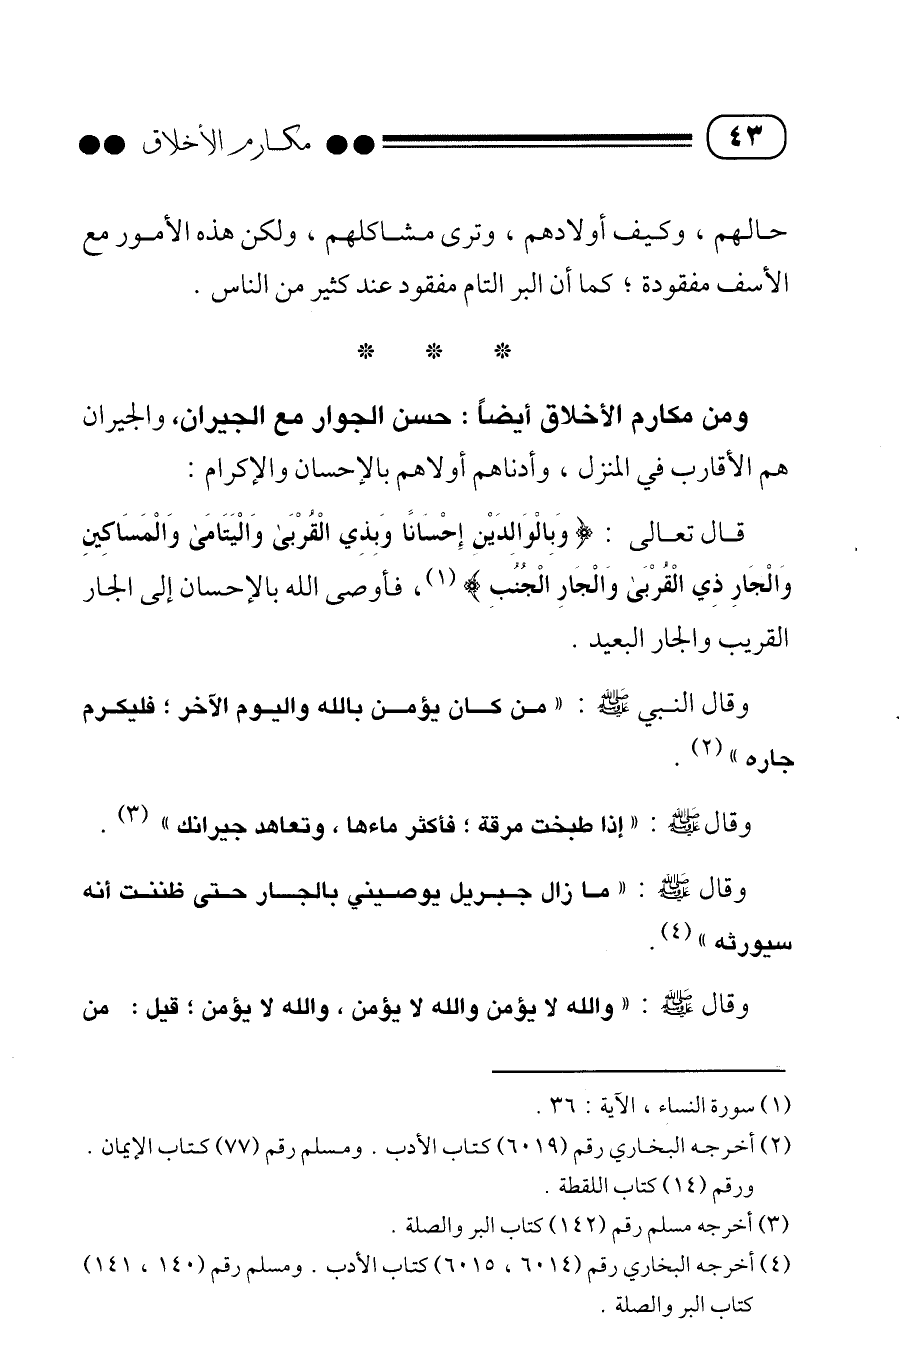 ٤٣ مكارم الأخلاق
حالهم ، وكيف أولادهم ، وترى مشاكلهم ، ولكن هذه الأمور مع
الأسف مفقودة ؛ كما أن البر التام مفقود عند كثير من الناس .
* * *
ومن مكارم الأخلاق أيضاً : حسن الجوار مع الجيران، والجيران
هم الأقارب في المنزل ، وأدناهم أولاهم بالإحسان والإكرام :
قال تعالى : ﴿ وَبِالْوَالِدَيْنِ إِحْسَانًا وَبِذِي الْقُرْبَىٰ وَالْيَتَامَىٰ وَالْمَسَاكِينِ
وَالْجَارِ ذِي الْقُرْبَىٰ وَالْجَارِ الْجُنُبِ ﴾ (١)، فأوصى الله بالإحسان إلى الجار
القريب والجار البعيد .
وقال النبي ﷺ : « من كان يؤمن بالله واليوم الآخر ؛ فليكرم
جاره » (٢) .
وقال ﷺ : « إذا طبخت مرقة ؛ فأكثر ماءها ، وتعاهد جيرانك » (٣) .
وقال ﷺ : « ما زال جبريل يوصيني بالجار حتى ظننت أنه
سيورثه » (٤) .
وقال ﷺ : « والله لا يؤمن والله لا يؤمن ، والله لا يؤمن ؛ قيل : من
(١) سورة النساء ، الآية : ٣٦ .
(٢) أخرجه البخاري رقم (٦٠١٩) كتاب الأدب . ومسلم رقم (٧٧) كتاب الإيمان .
ورقم (١٤) كتاب اللقطة .
(٣) أخرجه مسلم رقم (١٤٢) كتاب البر والصلة .
(٤) أخرجه البخاري رقم (٦٠١٤ ، ٦٠١٥) كتاب الأدب . ومسلم رقم (١٤٠ ، ١٤١)
كتاب البر والصلة .